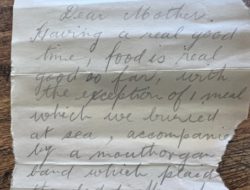 Dear Mother.
Having a real good
time, food is real
good so far, with
the exception of 1 meal
which we buried
at sea, accompanied
by a mouthorgan
band which placid